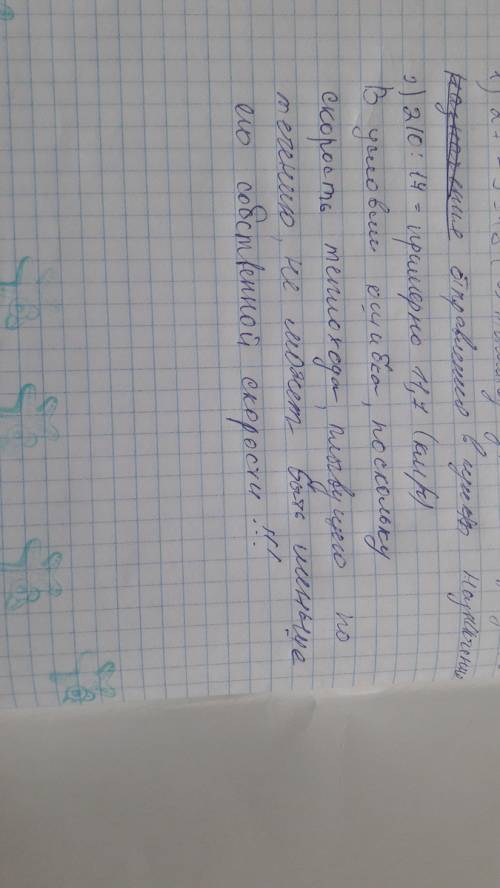 отправления в пункт назначения
2) 210 : 14 = примерно 11,7 (км/ч)
В условии ошибка, поскольку
скорость теплохода, плывущего по
течению, не может быть меньше
его собственной скорости !!!